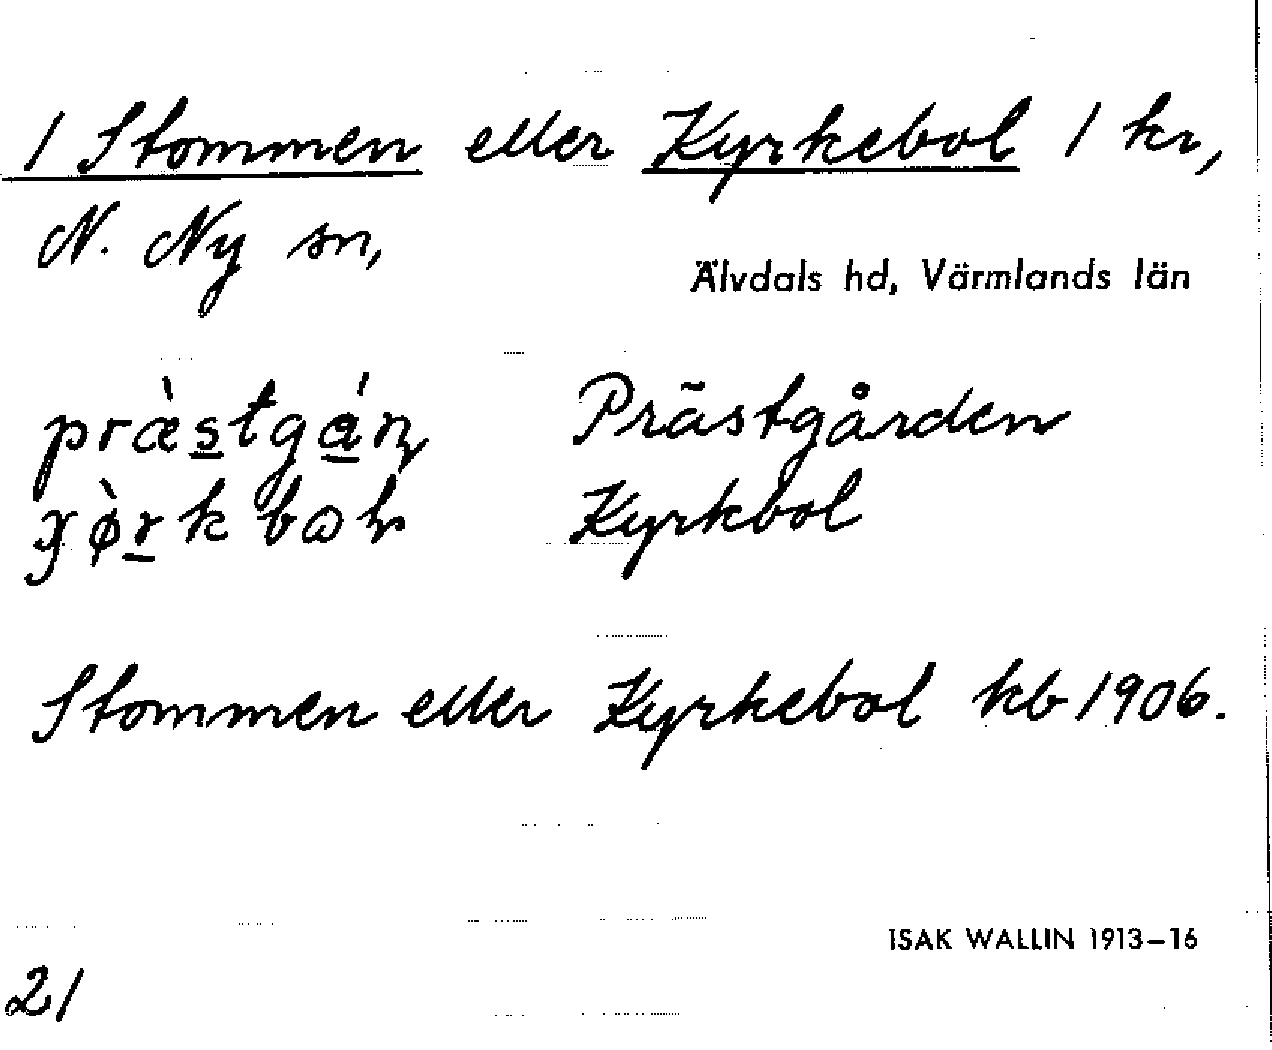 1 Stommen eller Kyrkebol 1 kr,
N. Ny sn,
Älvdals hd, Värmlands län
præ̀stgán Prästgården
Kyrkbol
Stommen eller Kyrkebol kb 1906.
ISAK WALLIN 1913–16
21